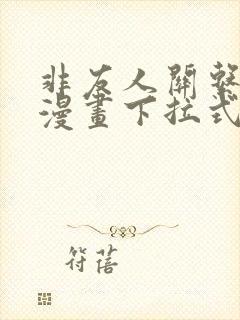 非友人關繫
漫畫下拉式
符蓓